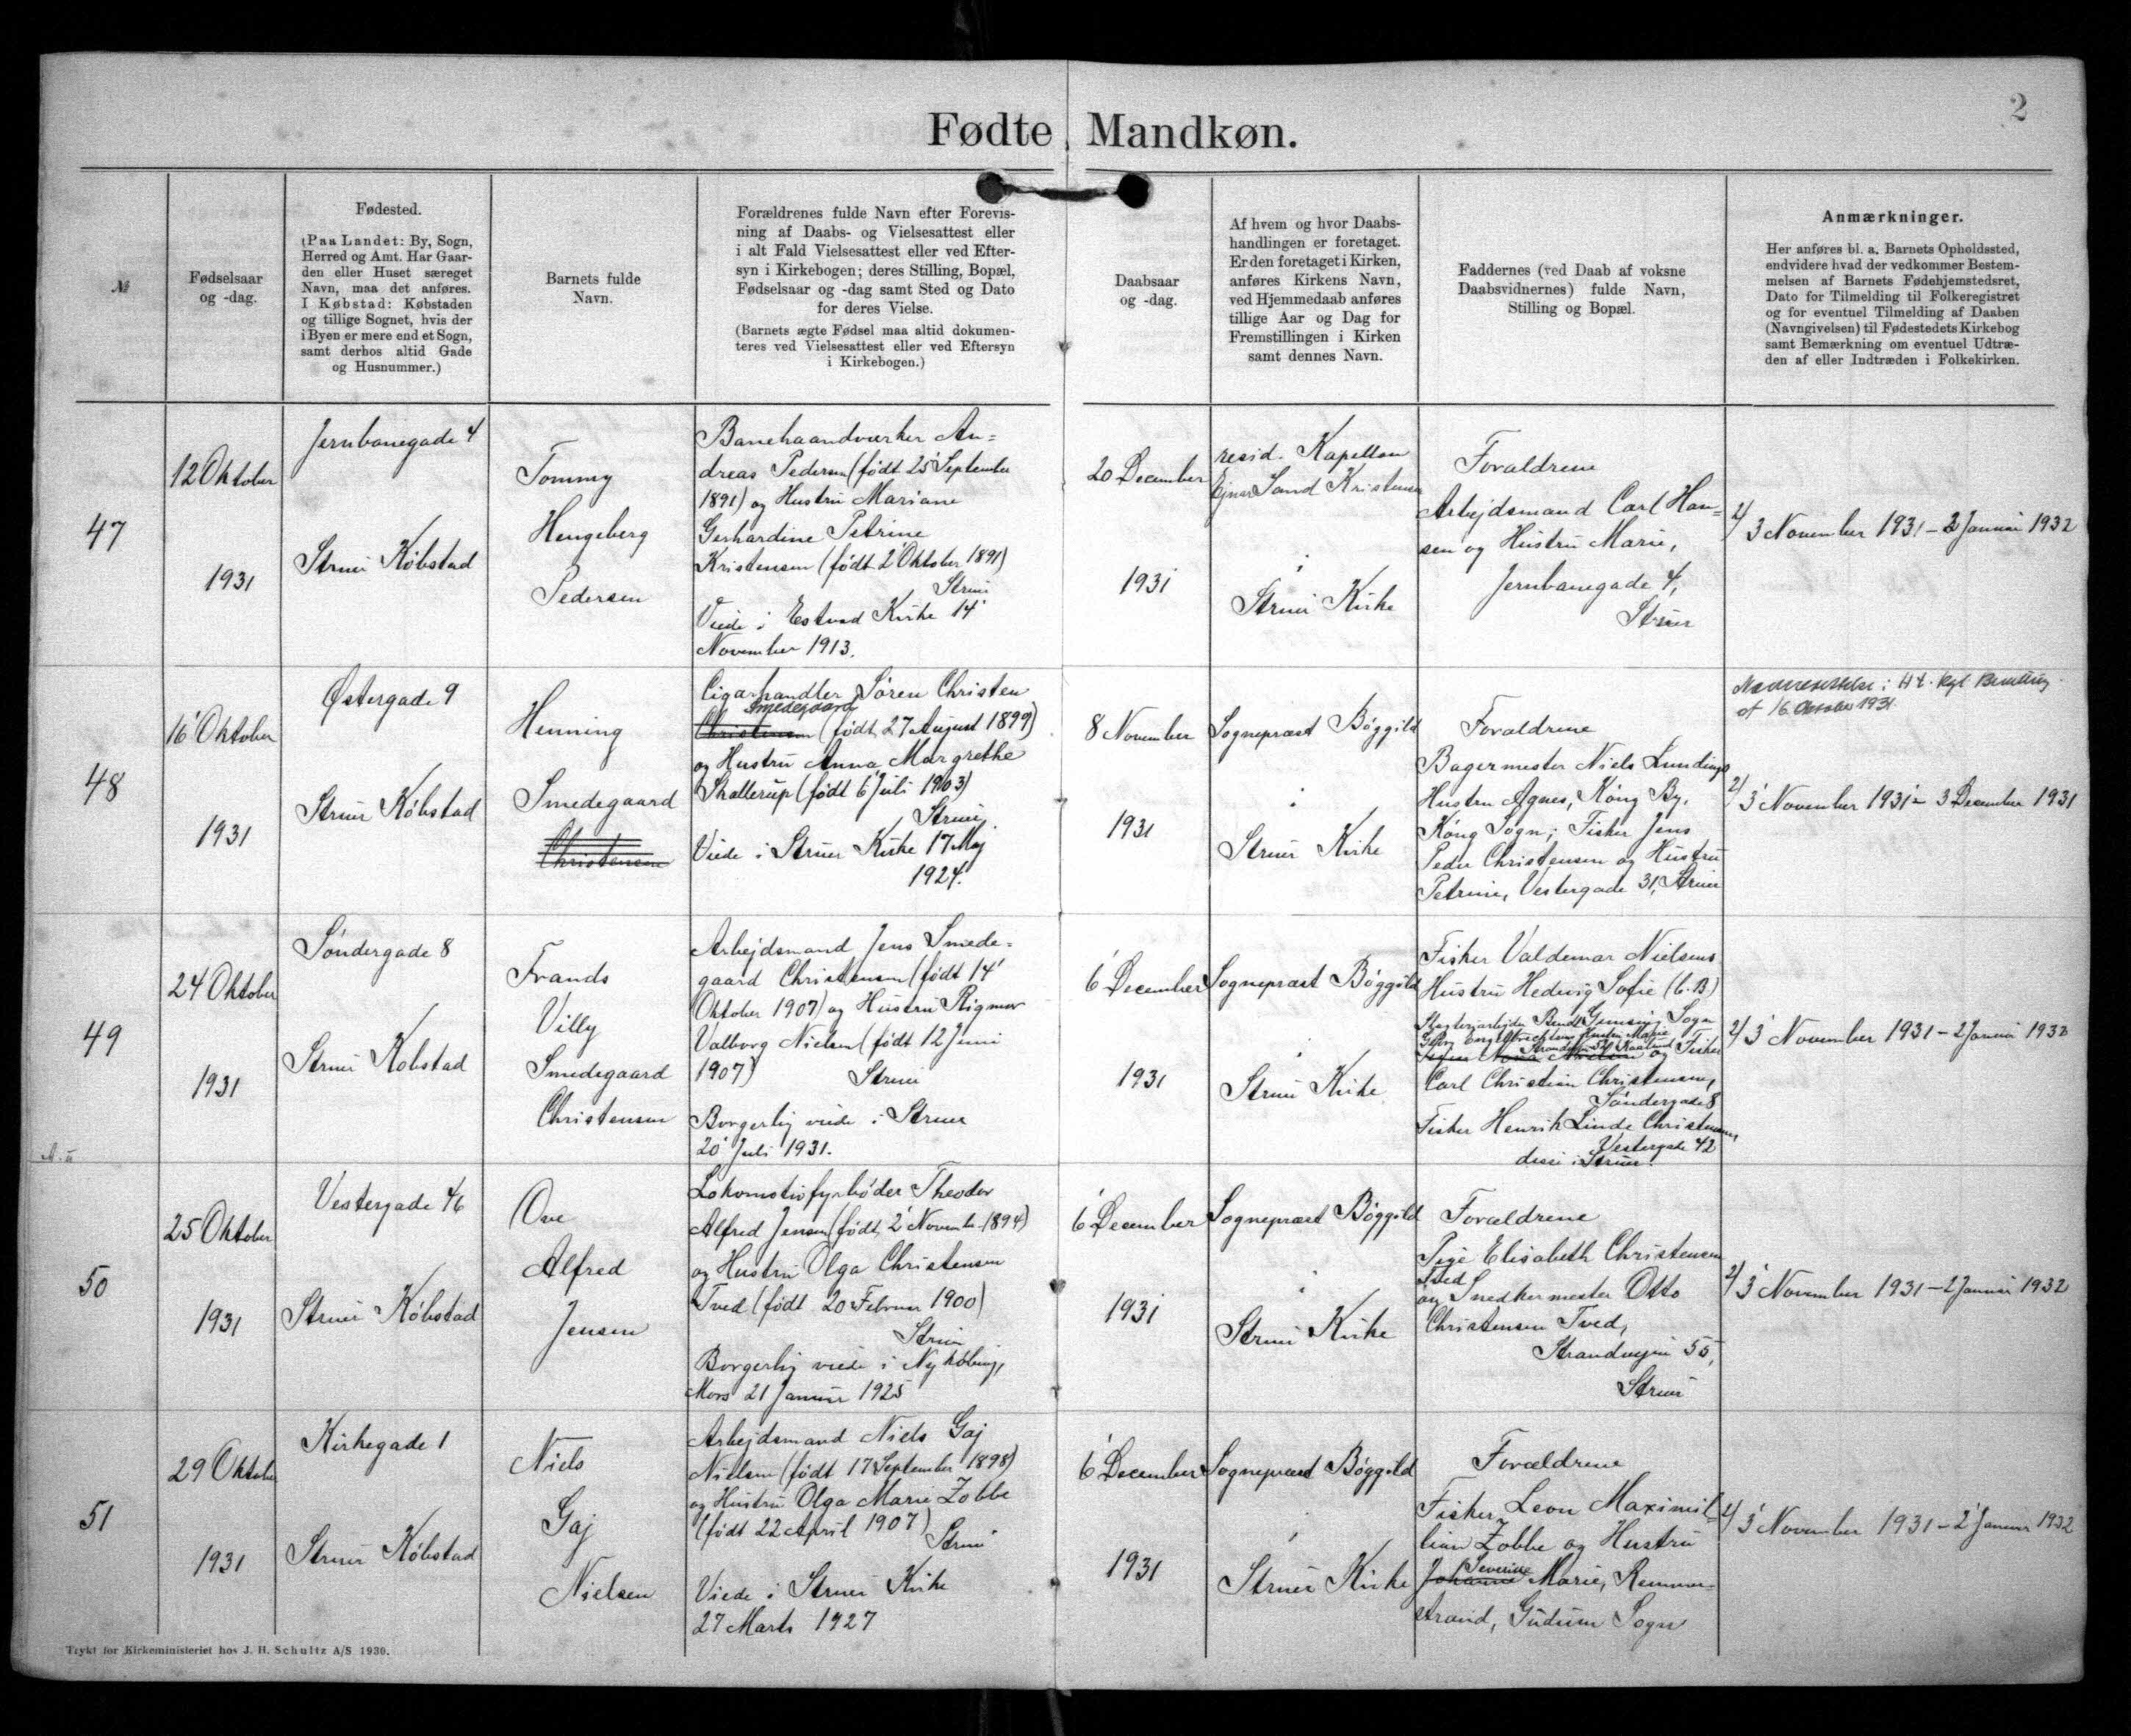 2
Fødte Mandkøn.
№
Fødselsaar
og -dag.
Fødested.
(Paa Landet: By, Sogn,
Herred og Amt. Har Gaar-
den eller Huset særeget
Navn, maa det anføres.
I Købstad: Købstaden
og tillige Sognet, hvis der
i Byen er mere end et Sogn,
samt derhos altid Gade
og Husnummer.)
Barnets fulde
Navn.
Forældrenes fulde Navn efter Forevis-
ning af Daabs- og Vielsesattest eller
i alt Fald Vielsesattest eller ved Efter-
syn i Kirkebogen; deres Stilling, Bopæl,
Fødselsaar og -dag samt Sted og Dato
for deres Vielse.
(Barnets ægte Fødsel maa altid dokumen-
teres ved Vielsesattest eller ved Eftersyn
i Kirkebogen.)
Daabsaar
og -dag.
Af hvem og hvor Daabs-
handlingen er foretaget.
Er den foretaget i Kirken,
anføres Kirkens Navn,
ved Hjemmedaab anføres
tillige Aar og Dag for
Fremstillingen i Kirken
samt dennes Navn.
Faddernes (ved Daab af voksne
Daabsvidnernes) fulde Navn,
Stilling og Bopæl.
Anmærkninger.
Her anføres bl. a. Barnets Opholdssted,
endvidere hvad der vedkommer Bestem-
melsen af Barnets Fødehjemstedsret,
Dato for Tilmelding til Folkeregistret
og for eventuel Tilmelding af Daaben
(Navngivelsen) til Fødestedets Kirkebog
samt Bemærkning om eventuel Udtræ-
den af eller Indtræden i Folkekirken.
47
12 Oktober
1931
Jernbanegade 4
Struer Købstad
Tommy
Hengeberg
Pedersen
Banehaandværker An=
dreas Pedersen (født 25 September
1891) og Hustru Mariane
Gerhardine Petrine
Kristensen (født 2 Oktober 1891)
Struer
Viede i Estvad Kirke 14
November 1913.
20 December
1931
resid. Kapellan
Ejnar Sand Kristensen
i
Struer Kirke
Forældrene
Arbejdsmand Carl Han=
sen og Hustru Marie,
Jernbanegade 4,
Struer
2/ 3 November 1931 - 2 Januar 1932
48
16 Oktober
1931
Østergade 9
Struer Købstad
Henning
Smedegaard
Christensen
Cigarhandler Søren Christen
Smedegaard
Christensen (født 27 August 1899)
og Hustru Anna Margrethe
Skallerup (født 6 Juli 1903)
Struer
Viede i Struer Kirke 17 Maj
1924.
8 November
1931
Sognepræst Bøggild
i
Struer Kirke
Forældrene
Bagermester Niels Lundings
Hustru Agnes, Køng By,
Køng Sogn; Fisker Jens
Peder Christensen og Hustru
Petrine, Vestergade 31, Struer
i H. t. kgl. Bevilling
af 16 Oktober 1931.
2/ 3 November 1931 - 3 December 1931
49
24 Oktober
1931
Søndergade 8
Struer Købstad
Frands
Villy
Smedegaard
Christensen
Arbejdsmand Jens Smede=
gaard Christensen (født 14
Oktober 1907) og Hustru Rigmor
Valborg Nielsen (født 12 Juni
1907)
Struer
Borgerlig viede i Struer
20 Juli 1931.
6 December
1931
Sognepræst Bøggild
i
Struer Kirke
Fisker Valdemar Nielsens
Hustru Hedvig Sofie (b. B.)
Gimsing Sogn
og Fisker
Carl Christian Christensen,
Søndergade 8
Fisker Henrik Linde Christensen,
Vestergade 42
disse i Struer.
2/ 3 November 1931 - 2 Januar 1932
50
25 Oktober
1931
Vestergade 46
Struer Købstad
Ove
Alfred
Jensen
Lokomotivfyrbøder Theodor
Alfred Jensen (født 2 Novembr 1894)
og Hustru Olga Christensen
Tved (født 20 Februar 1900)
Struer
Borgerlig viede i Nykøbing,
Mors 21 Januar 1925
6 December
1931
Sognepræst Bøggild
i
Struer Kirke
Forældrene
Pige Elisabeth Christensen
Tved
og Snedkermester Otto
Christensen Tved,
Strandvejen 55,
Struer
2/ 3 November 1931 - 2 Januar 1932
51
29 Oktober
1931
Kirkegade 1
Struer Købstad
Niels
Gaj
Nielsen
Arbejdsmand Niels Gaj
Nielsen (født 17 September 1898)
og Hustru Olga Marie Zobbe
(født 22 April 1907)
Struer
Viede i Struer Kirke
27 Marts 1927
6 December
1931
Sognepræst Bøggild
i
Struer Kirke
Forældrene
Fisker Leon Maximil=
lian Zobbe og Hustru
Severine
Johanne Marie, Remmer=
strand, Gudum Sogn
2/ 3 November 1931 - 2 Januar 1932
Trykt for Kirkeministeriet hos J. H. Schultz A/S 1930.